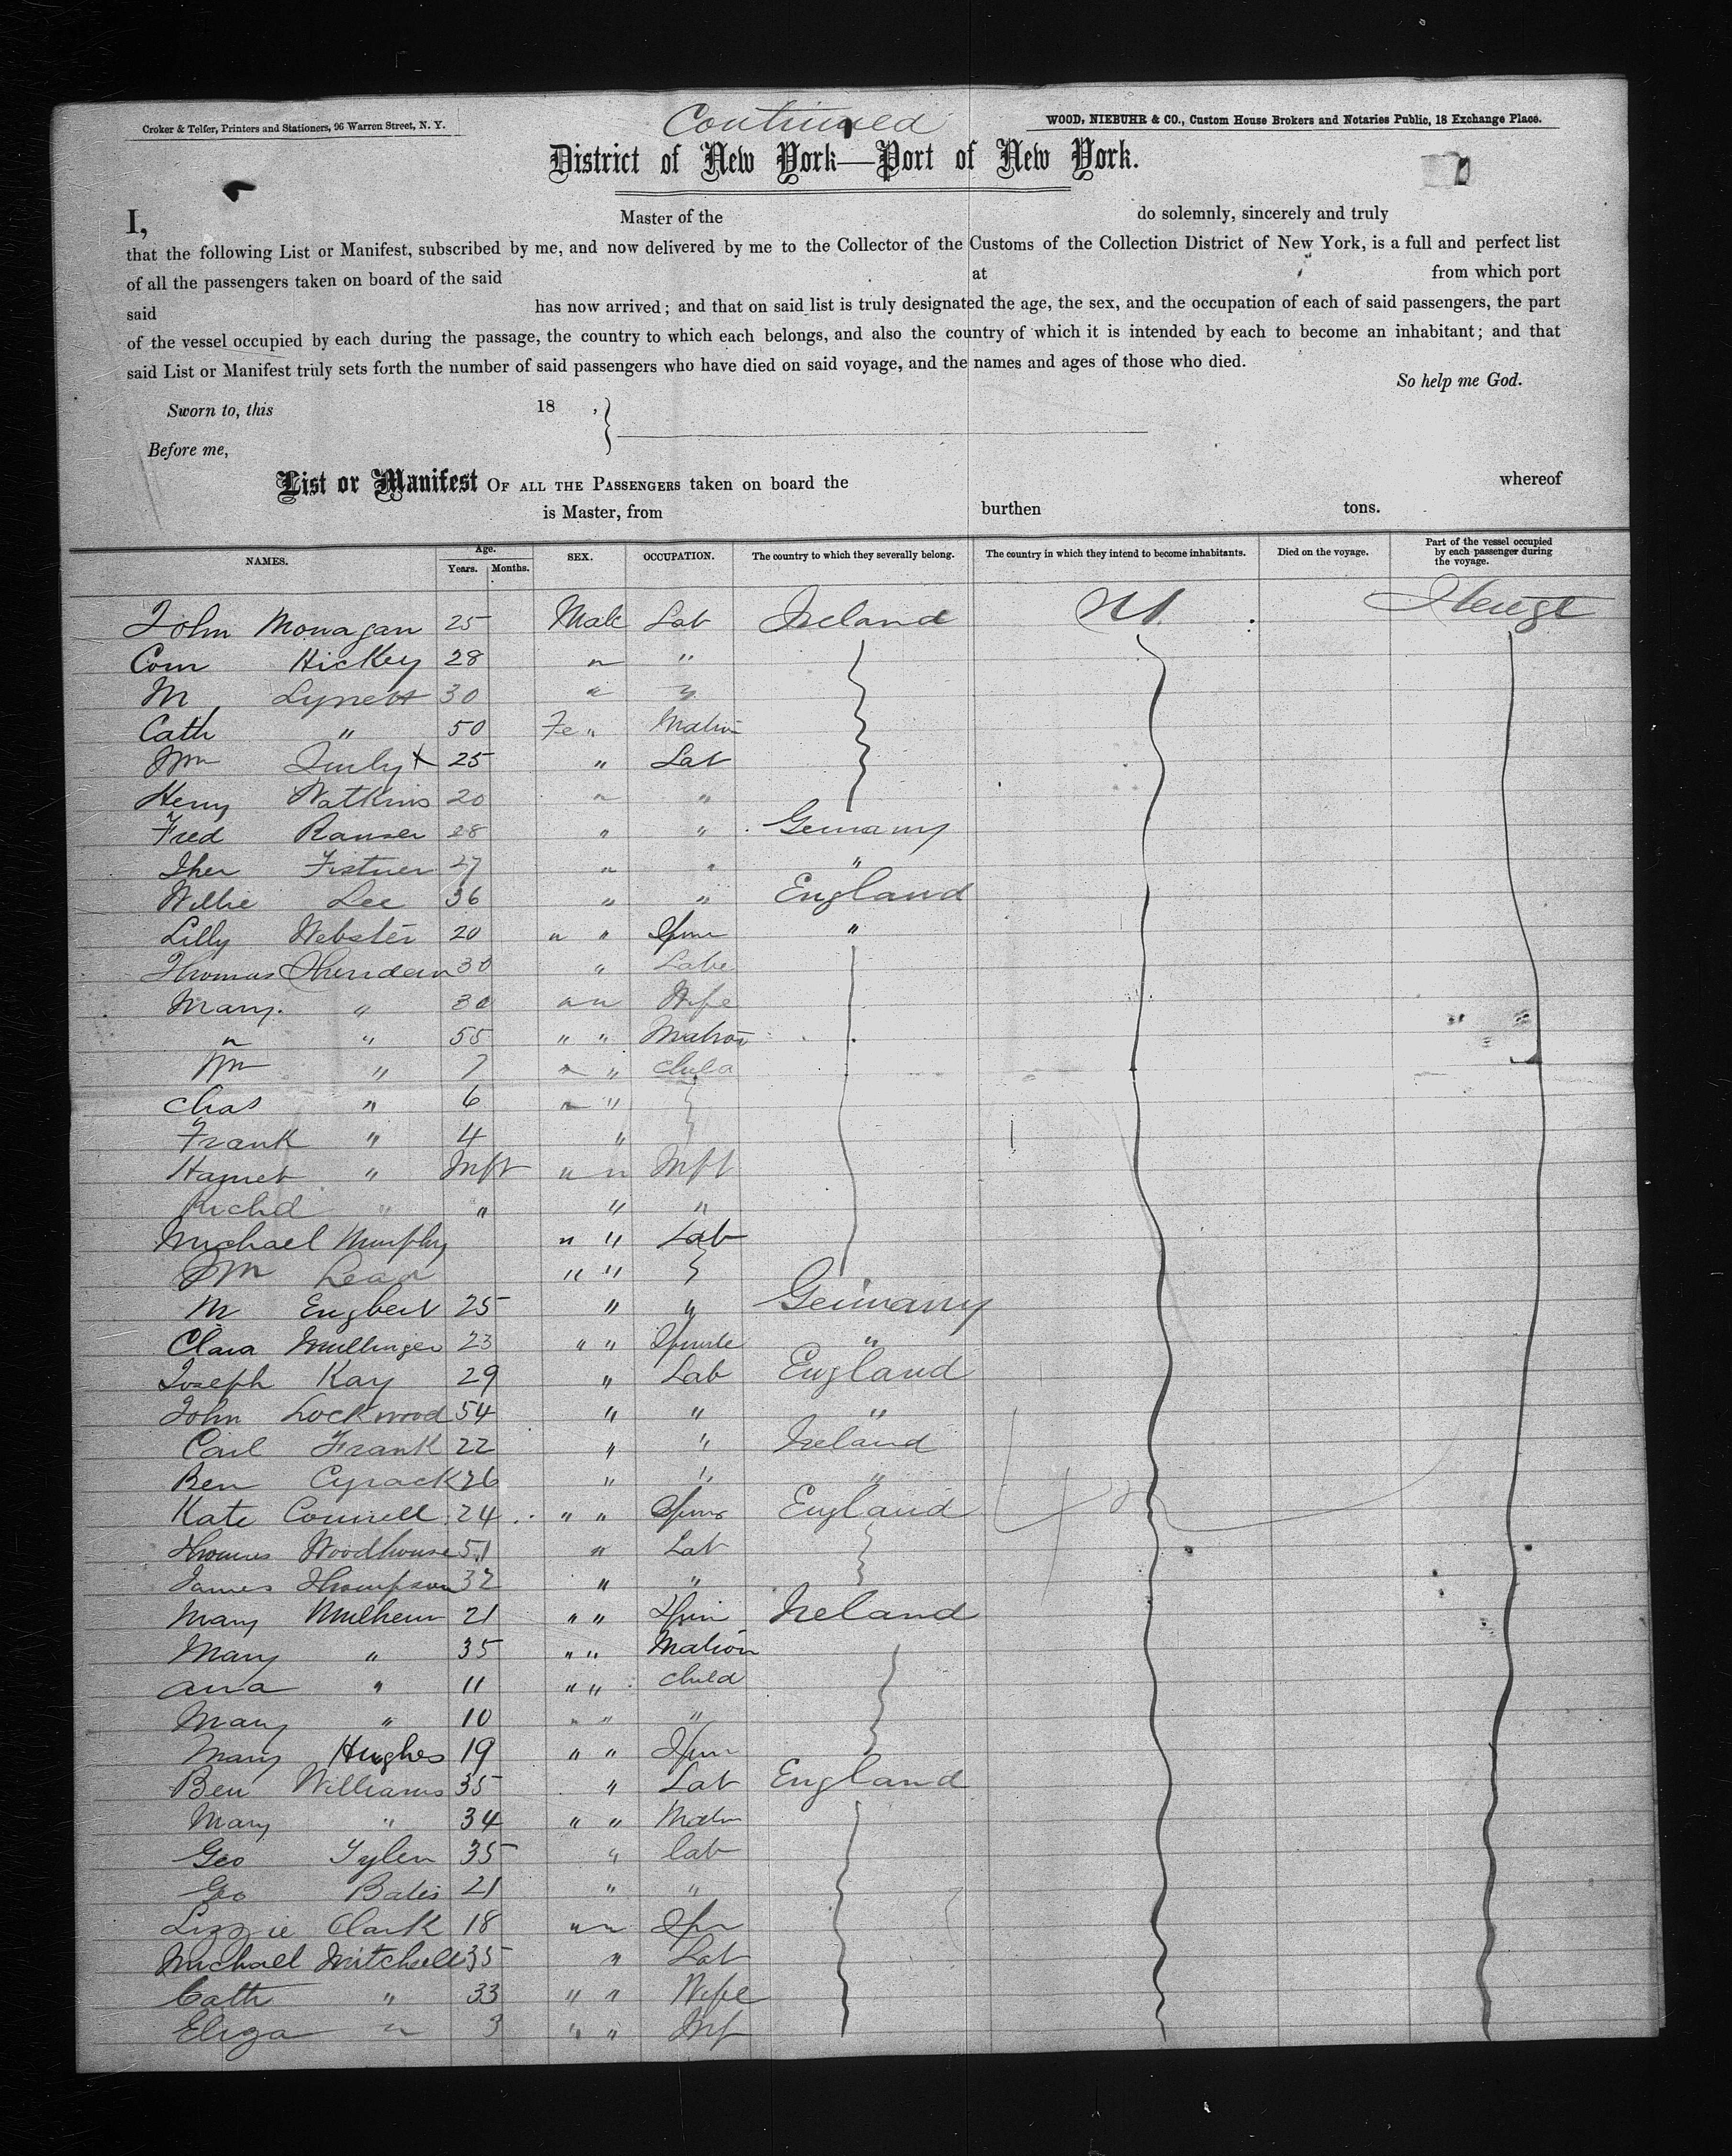 Croker & Telfer, Printers and Stationers, 96 Warren Street, N. Y.
Continued
WOOD, NIEBUHR & CO., Custom House Brokers and Notaries Public, 18 Exchange Place.
District of New York—Port of New York.
I, Master of the do solemnly, sincerely and truly
that the following List or Manifest, subscribed by me, and now delivered by me to the Collector of the Customs of the Collection District of New York, is a full and perfect list
of all the passengers taken on board of the said at from which port
said has now arrived; and that on said list is truly designated the age, the sex, and the occupation of each of said passengers, the part
of the vessel occupied by each during the passage, the country to which each belongs, and also the country of which it is intended by each to become an inhabitant; and that
said List or Manifest truly sets forth the number of said passengers who have died on said voyage, and the names and ages of those who died.
So help me God.
Sworn to, this 18 ,
Before me,
List or Manifest OF ALL THE PASSENGERS taken on board the whereof
is Master, from burthen tons.
NAMES. Age. Years. Months. SEX. OCCUPATION. The country to which they severally belong. The country in which they intend to become inhabitants. Died on the voyage. Part of the vessel occupied by each passenger during the voyage.
John Monagan 25 Male Lab Ireland
Corn Hickey 28 " "
M Lynett 30 " "
Cath " 50 Fe " Matron
Wm 25 " Lab
Henry Watkins 20 " "
Fred Ranser 28 " " Germany
Fistner 27 " " "
Willie Lee 36 " " England
Lilly Webster 20 " " Spin "
Thomas Sheridan 30 " Labr
Mary " 30 " " Wife
" " 55 " " Matron
Wm " 7 " " child
Chas " 6 " "
Frank " 4 "
Harriet " Inft " " Inft
Richd " " " "
Michael Murphy " " Lab
Wm " "
M Engbert 25 " " Germany
Clara Mullinger 23 " " "
Joseph Kay 29 " Lab England
John Lockwood 54 " " "
Carl Frank 22 " " Ireland
Ben Cyrack 26 " " "
Kate Connell 24 " " Spins England
Thomas Woodhouse 51 " Lab
James Thompson 32 " "
Mary Mulhern 21 " " Spin Ireland
Mary " 35 " " Matron
Ana " 11 " " child
Mary " 10 " " "
Mary Hughes 19 " " Spin
Ben Williams 35 " Lab England
Mary " 34 " " Matn
Geo Tyler 35 " lab
Geo Bates 21 " "
Lizzie Clark 18 " " Spn
Michael Mitchell 35 " Lab
Cath " 33 " " Wife
Eliza " 3 " " Inf